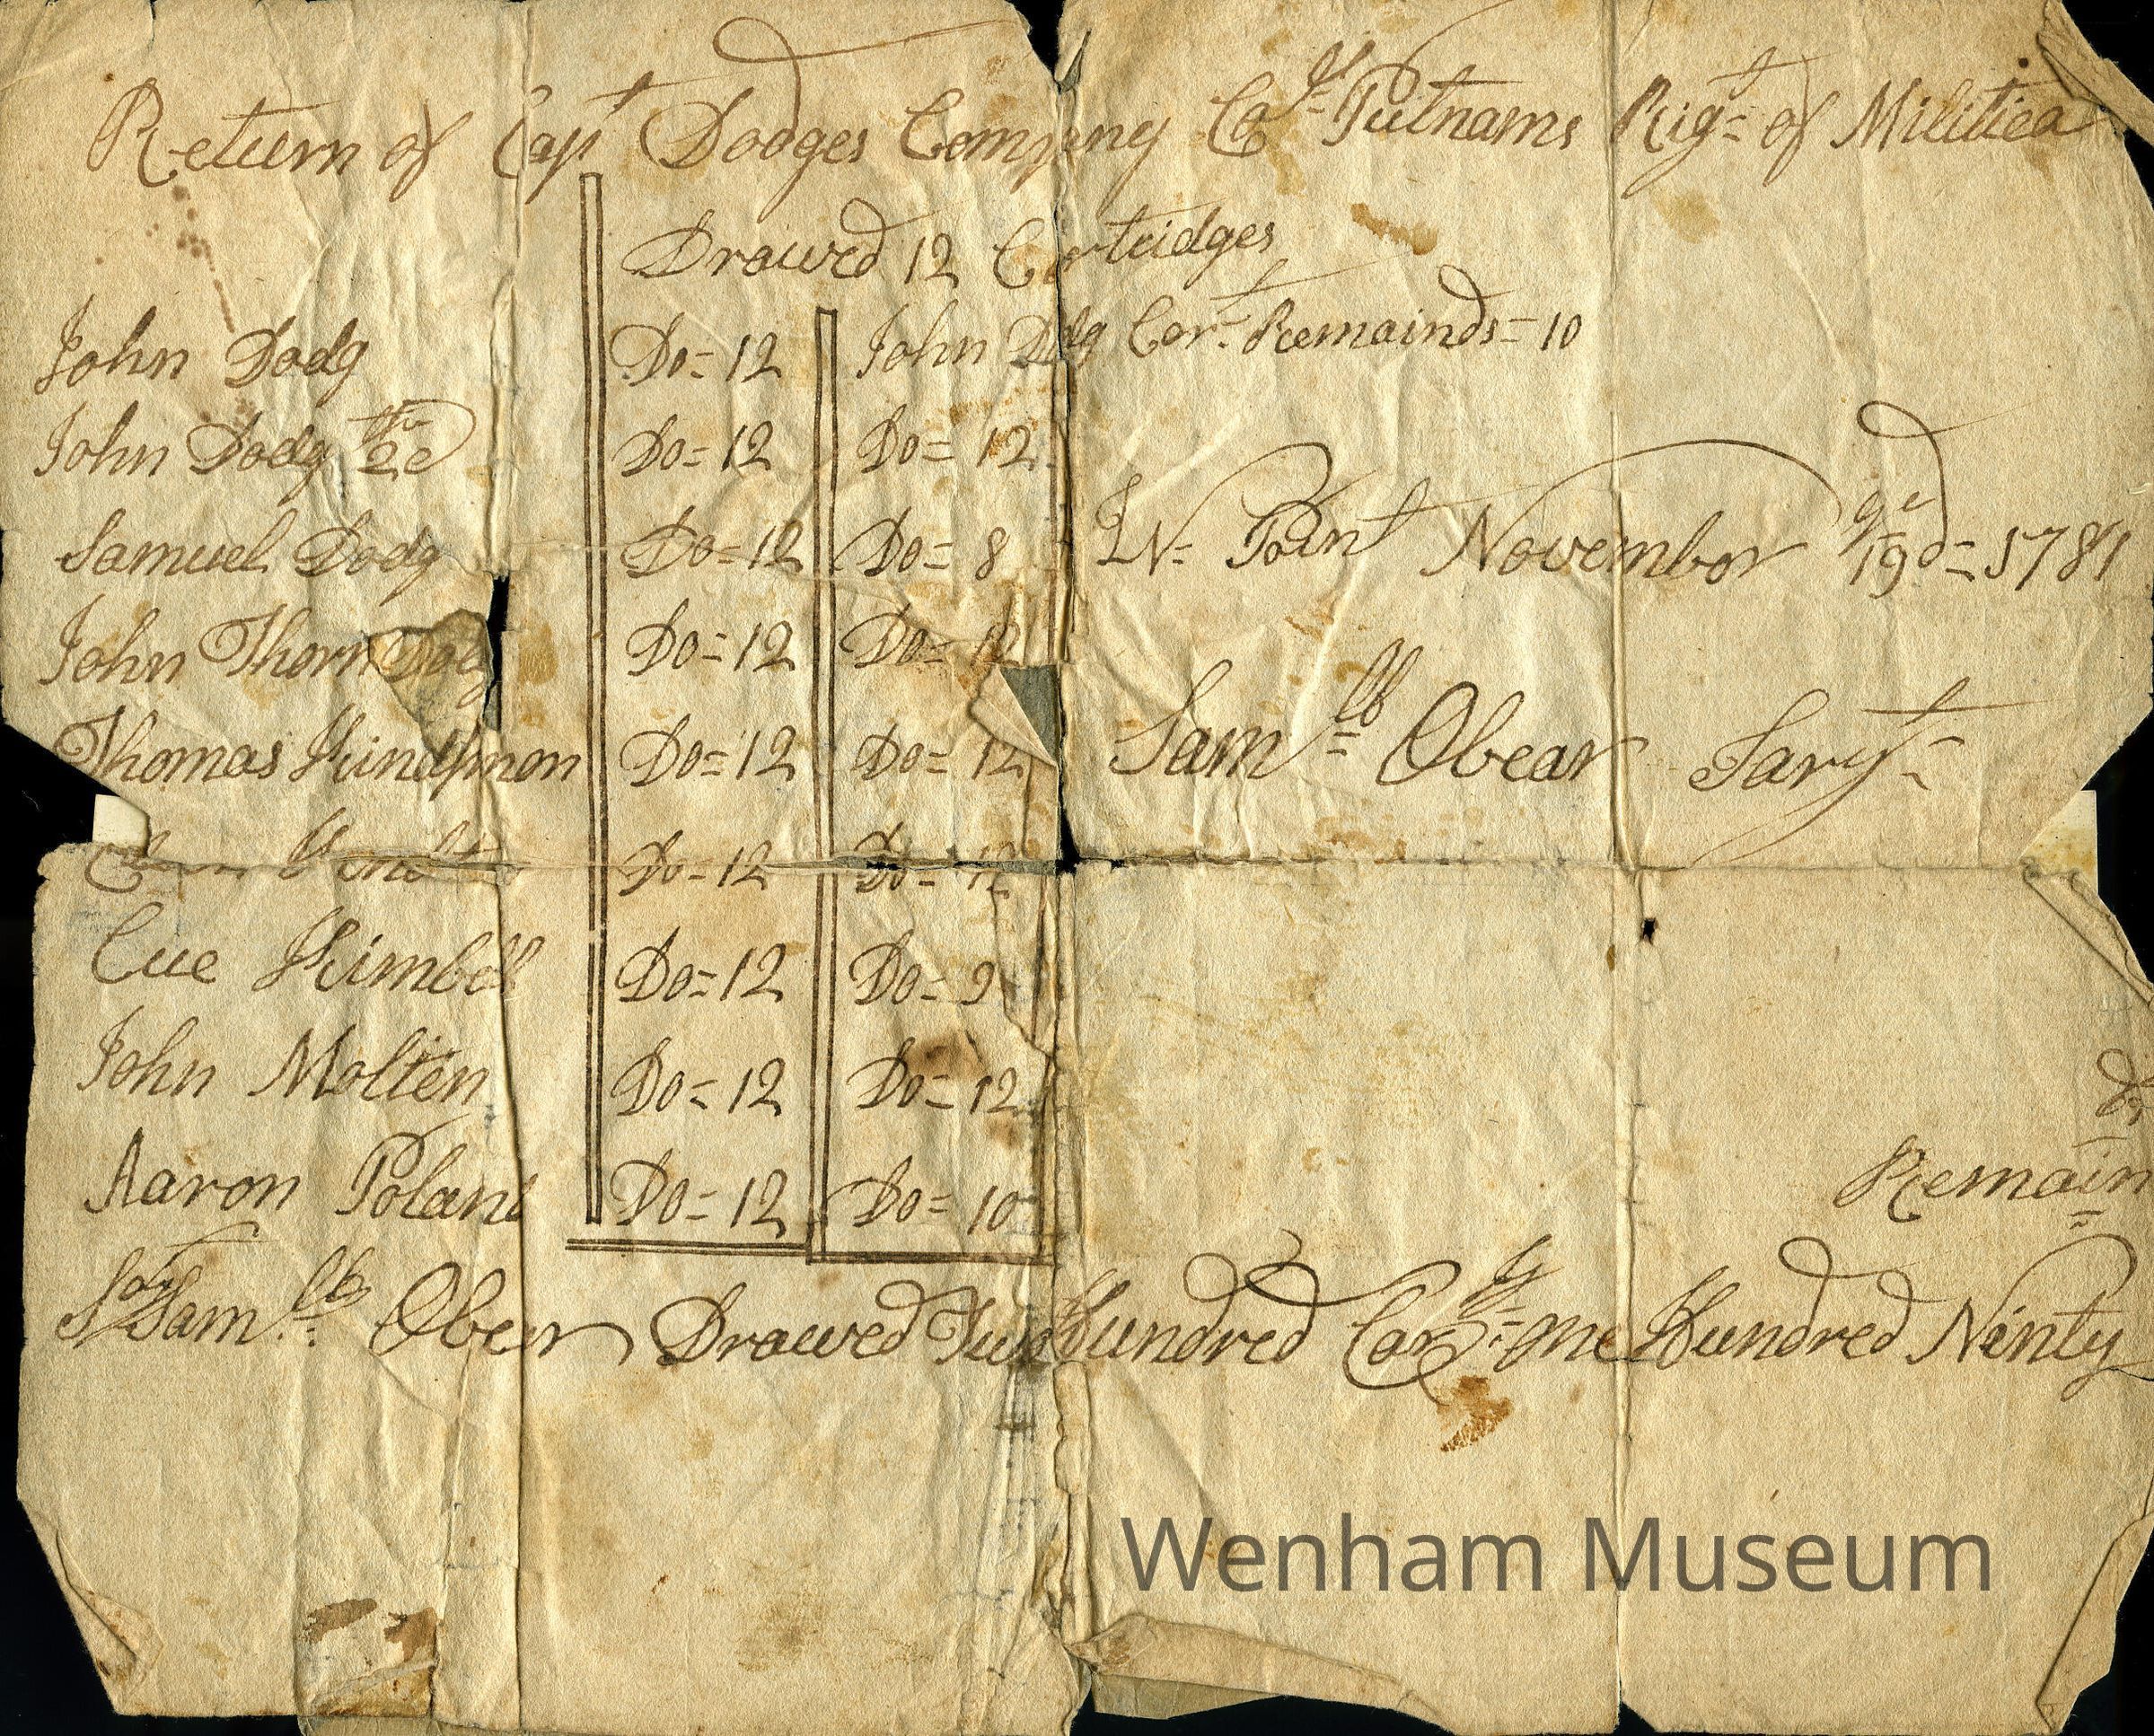 Return of Capt Dodges Company Col Putnams Rigt of Militiea
Drawed 12 Cartridges
John Dodg Do= 12 John Dodg Cart Remainds= 10
John Dodg the 2e Do= 12 Do= 12
Samuel Dodg Do= 12 Do= 8
W= Point November ye 19d= 1781
John Thorn Dodg Do= 12 Do= 12
Thomas Kindsmon Do= 12 Do= 12
Samll Obear Sarjt
Do= 12 Do= 12
Cue Kimbell Do= 12 Do= 9
John Molten Do= 12 Do= 12
Aaron Poland Do= 12 Do= 10
Remain
Sarjt Samll Obear Drawed Two Hundred Carg one Hundred Ninty
Wenham Museum